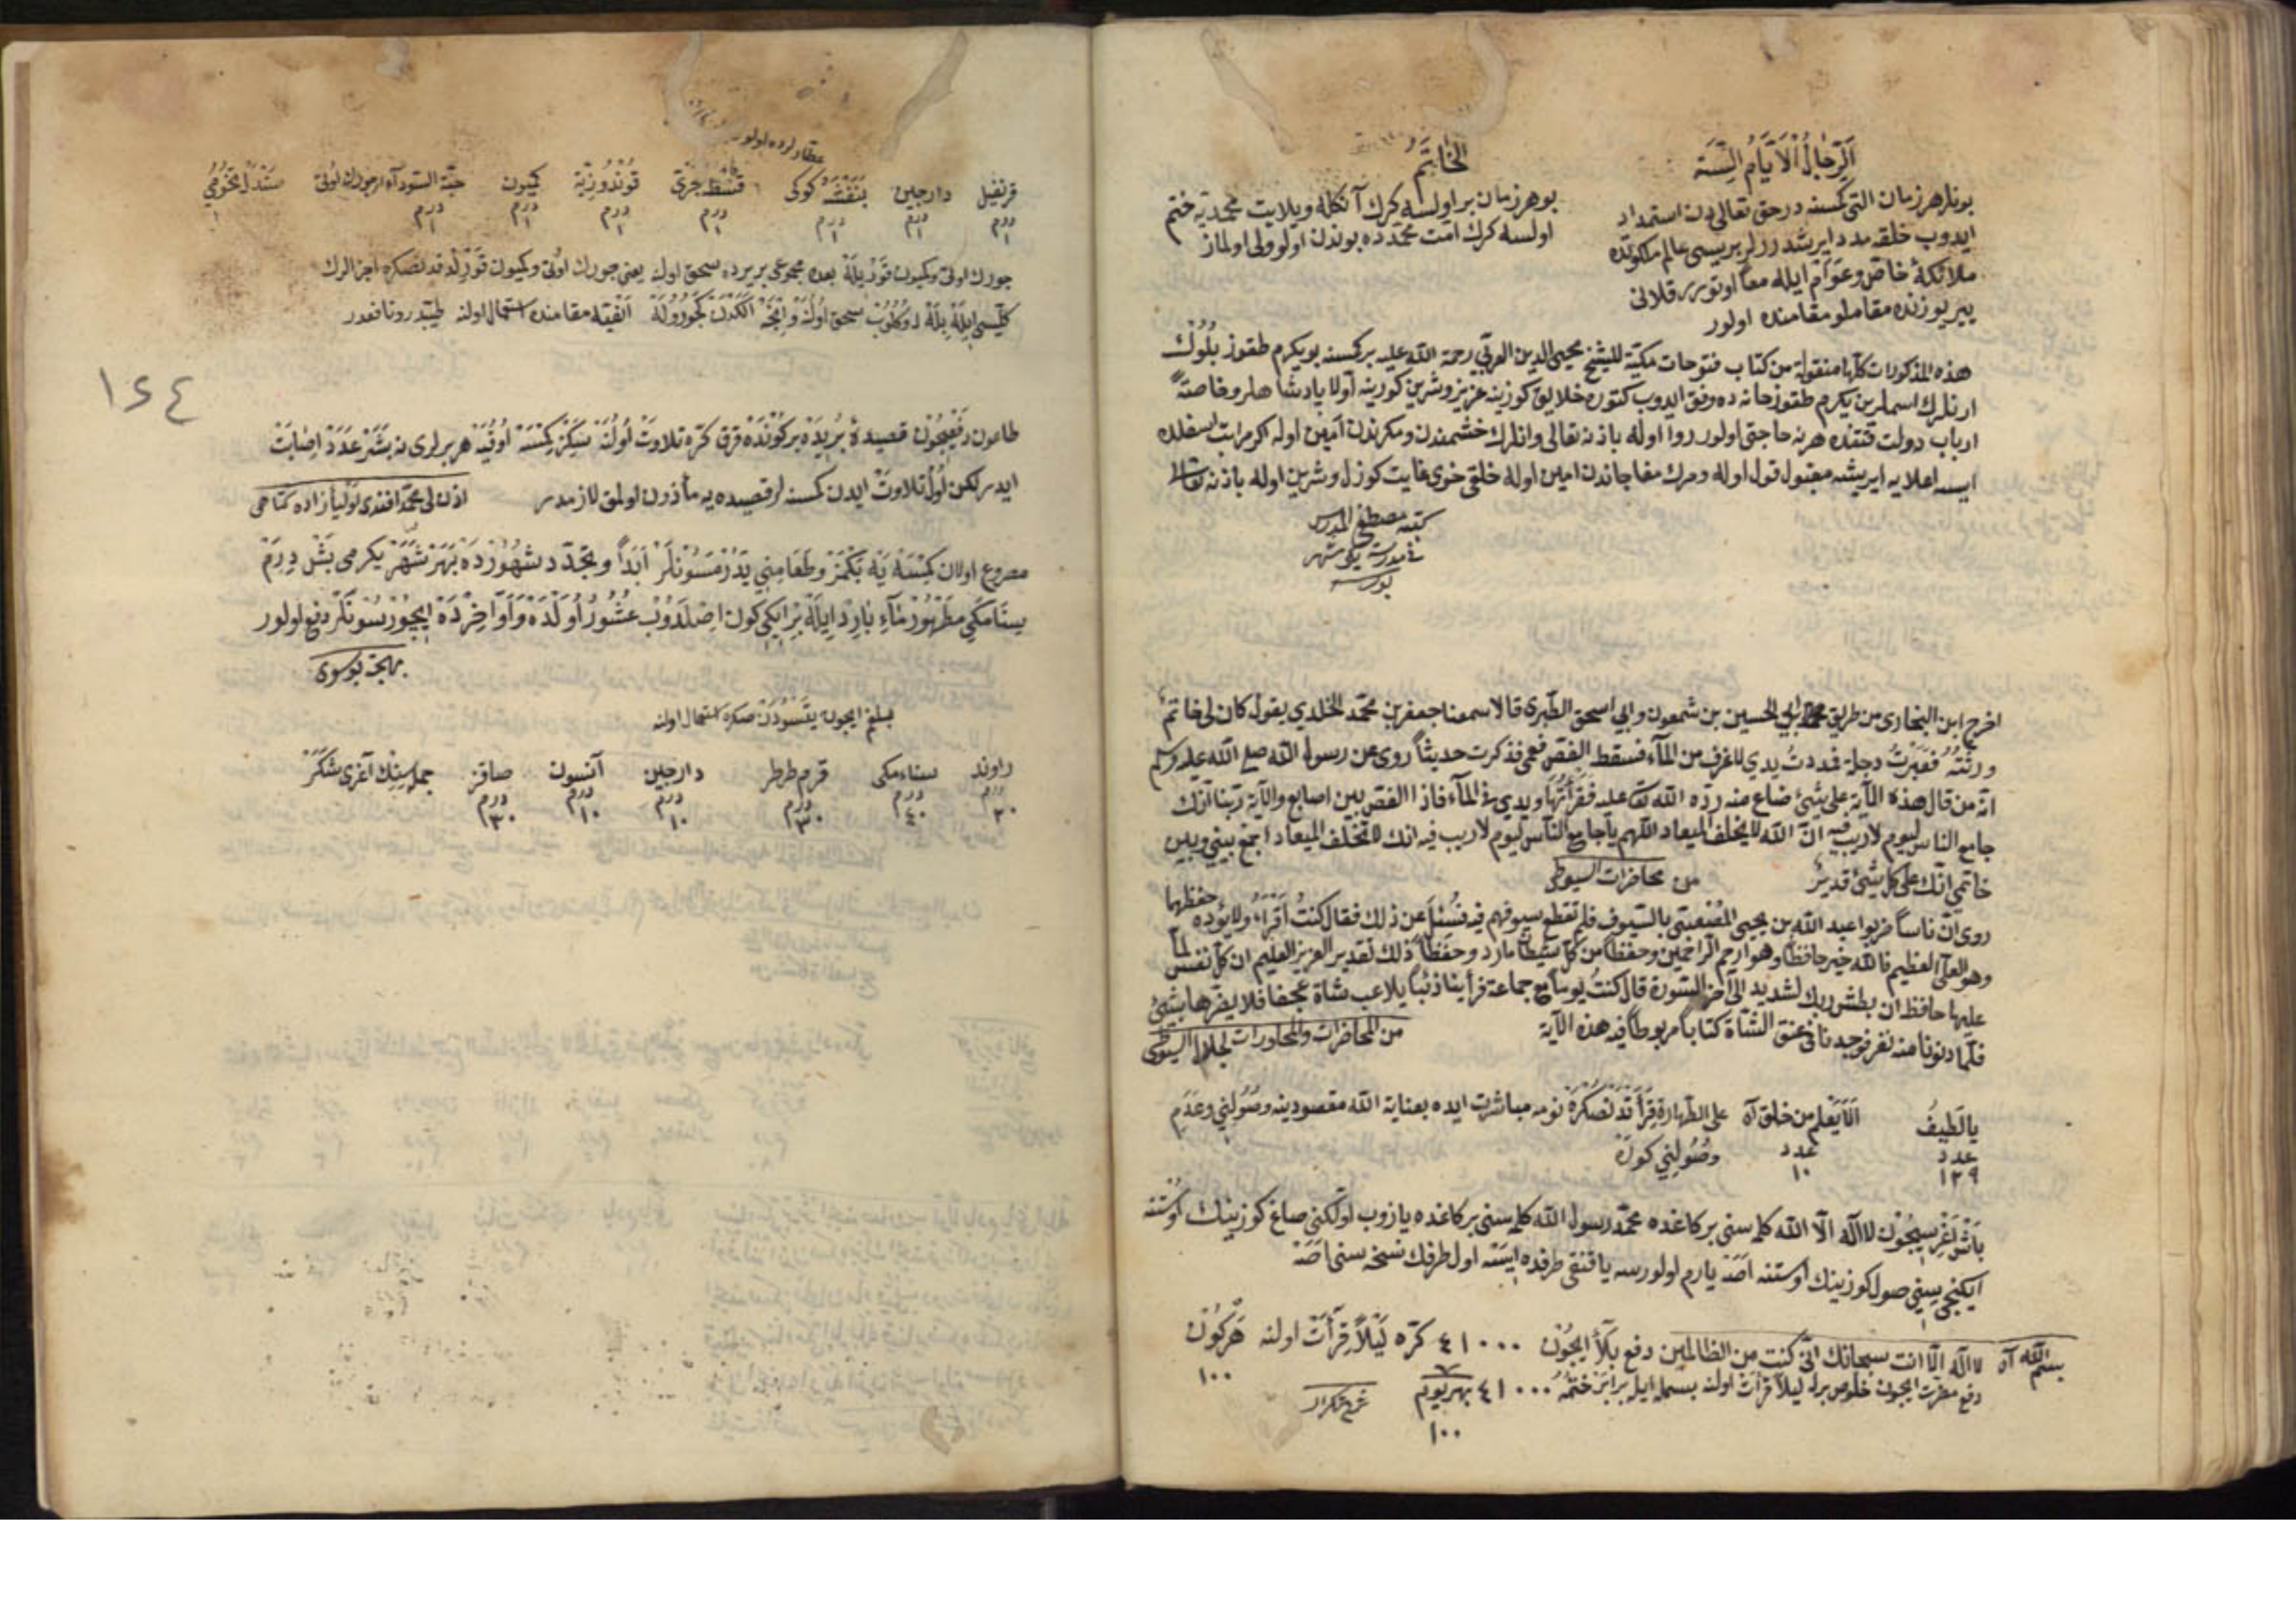 الرجال الايام الستة
بونلر هر زمان التی كسنه در حق تعالی دن استمداد
ايدوب خلقه مدد ايرشدررلر بريسی عالم ملكوتده
ملائكۀ خاص وعوام ايله معا اوتورر قلانی
يير يوزنده مقاملو مقامنده اولور
الخاتم
بو هر زمان بر اولسه كرك آنكله ويلايت محمديه ختم
اولسه كرك امت محمدده بوندن اولو ولی اولماز
هذه المذكورات كلها منقولة من كتاب فتوحات مكية للشيخ محيی الدين العربی رحمة الله عليه بر كسنه بو يكرم طقوز بلوك
ارنلرك اسملرين يكرم طقوز خانه ده وفق ايدوب كتوره خلايق كوزينه عزيز وشرين كورينه اولا پادشاهلر وخاصة
ارباب دولت قتنده هر نه حاجتی اولور روا اوله باذنه تعالی وانلرك خشمندن ومكرندن امين اوله اكر مراتب اسفلده
ايسه اعلايه ايريشه مقبول قول اوله ومرك مفاجاندن امين اوله خلقی خوی غايت كوزل وشرين اوله باذنه تعالی
كتبه مصطفی المدرس
فی مدرسة يكی شهر
بورسه
اخرج ابن البخاری من طريق محمد ابی الحسين بن شمعون وابی اسحق الطبری قالا سمعنا جعفر بن محمد الخلدي يقول كان لی خاتم
ورثته فعبرت دجلة فددت يدي للاغرف من المآء فسقط الفص فغمی فذكرت حديثاً روی عن رسول الله صلی الله عليه وسلم
انه من قال هذه الآية علی شیء ضاع منه رده الله تعا عليه فقرأتها ويدي فی المآء فاذا الفص بين اصابع والآية ربنا انك
جامع الناس ليوم لا ريب فيه ان الله لا يخلف الميعاد اللهم يا جامع الناس ليوم لا ريب فيه انك لا تخلف الميعاد اجمع بينی وبين
خاتمی انك علی كل شیء قدير من محاضرات السيوطی
روی ان ناساً ضربوا عبد الله بن يحيی المصعبی بالسيوف فلم تقطع سيوفهم فيه فسئل عن ذلك فقال كنت اقرأ ولا يؤده حفظهما
وهو العلی العظيم فالله خير حافظا وهو ارحم الراحمين وحفظا من كل شيطان مارد وحفظا ذلك تقدير العزيز العليم ان كل نفس لما
عليها حافظ ان بطش ربك لشديد الی آخر السورة قال كنت يوماً مع جماعة فرأينا ذئبا يلاعب شاة عجفا فلا يضرها بشیء
فلما دنونا منه نفر فوجدنا فی عنق الشاة كتابا مربوطا فيه هذه الآية من المحاضرات والمحاورات لجلال السيوطی
يا لطيف الا يعلم من خلق آه علی الطهارة قرأتدنصكره نومه مباشرت ايده بعناية الله مقصودينه وصولنی وعدم
عدد عدد وصولنی كوره
١٢٩ ١٠
باش اغريسيچون لا اله الا الله كلمه سنی بر كاغده محمد رسول الله كلمه سنی بر كاغده يازوب اولكنی صاغ كوزينك اوستنه
ايكنجيسينی صول كوزينك اوستنه اصه يارم اولورسه يا قنقی طرفده ايسه اول طرفك نسخه سنی اصه
بسم الله آه لا اله الا انت سبحانك انی كنت من الظالمين دفع بلا ايچون ٤١٠٠٠ كره ليلاً قرأت اولنه هر كون
١٠٠
دفع مضرت ايچون خلوص برله ليلا قرأت اولنه بسمله ايله برابر ختم ٤١٠٠٠ بهر يوم
١٠٠
عطارلرده اولور
قرنفيل دارچين بنفشه كوكی قسط بحری قوندوزيه كميون حبة السودآه صندل مخومی
درم درم درم درم درم درم درم
١ ١ ١ ١ ١ ١ ١ ١
چورك اوتی وكميون قوزيله بعده مجموعی بر يرده سحق اوله يعنی چورك اوتی وكميون قوزلدقدنصكره
سحق اولنه والكدن كچوروله انفيه مقامنده استعمال اولنه طيبدر ونافعدر
١٢٤
طاعون دفعيچون قصيدۀ بريده بر كونده قرق كره تلاوت اولنه سكز كسنه اوقيه هر برلری نه بشر عدد اصابت
ايدر لكن اول تلاوت ايدن كسنه لر قصيده يه مأذون اولمق لازمدر اذن لی محمد افندی
مصروع اولان كمسنه يه يكمز وطعامنی يدرمسونلر ابداً وتجدد شهورده بهر شهر يكرمی بش درم
سنامكی مطهور ماء بارد ايله بر ايكی كون اصلدوب عشور اولده واواخرده ايچورسونلر دفع اولور
بهجة بورسوی
بلغم ايچون يتسودن صكره استعمال اولنه
راوند سناءمكی قرم طرطر دارچين آنسون صاقز جمله سينك آغری شكر
درم درم درم درم درم درم
٢٠ ٤٠ ٣٠ ١٠ ١٠ ٣٠